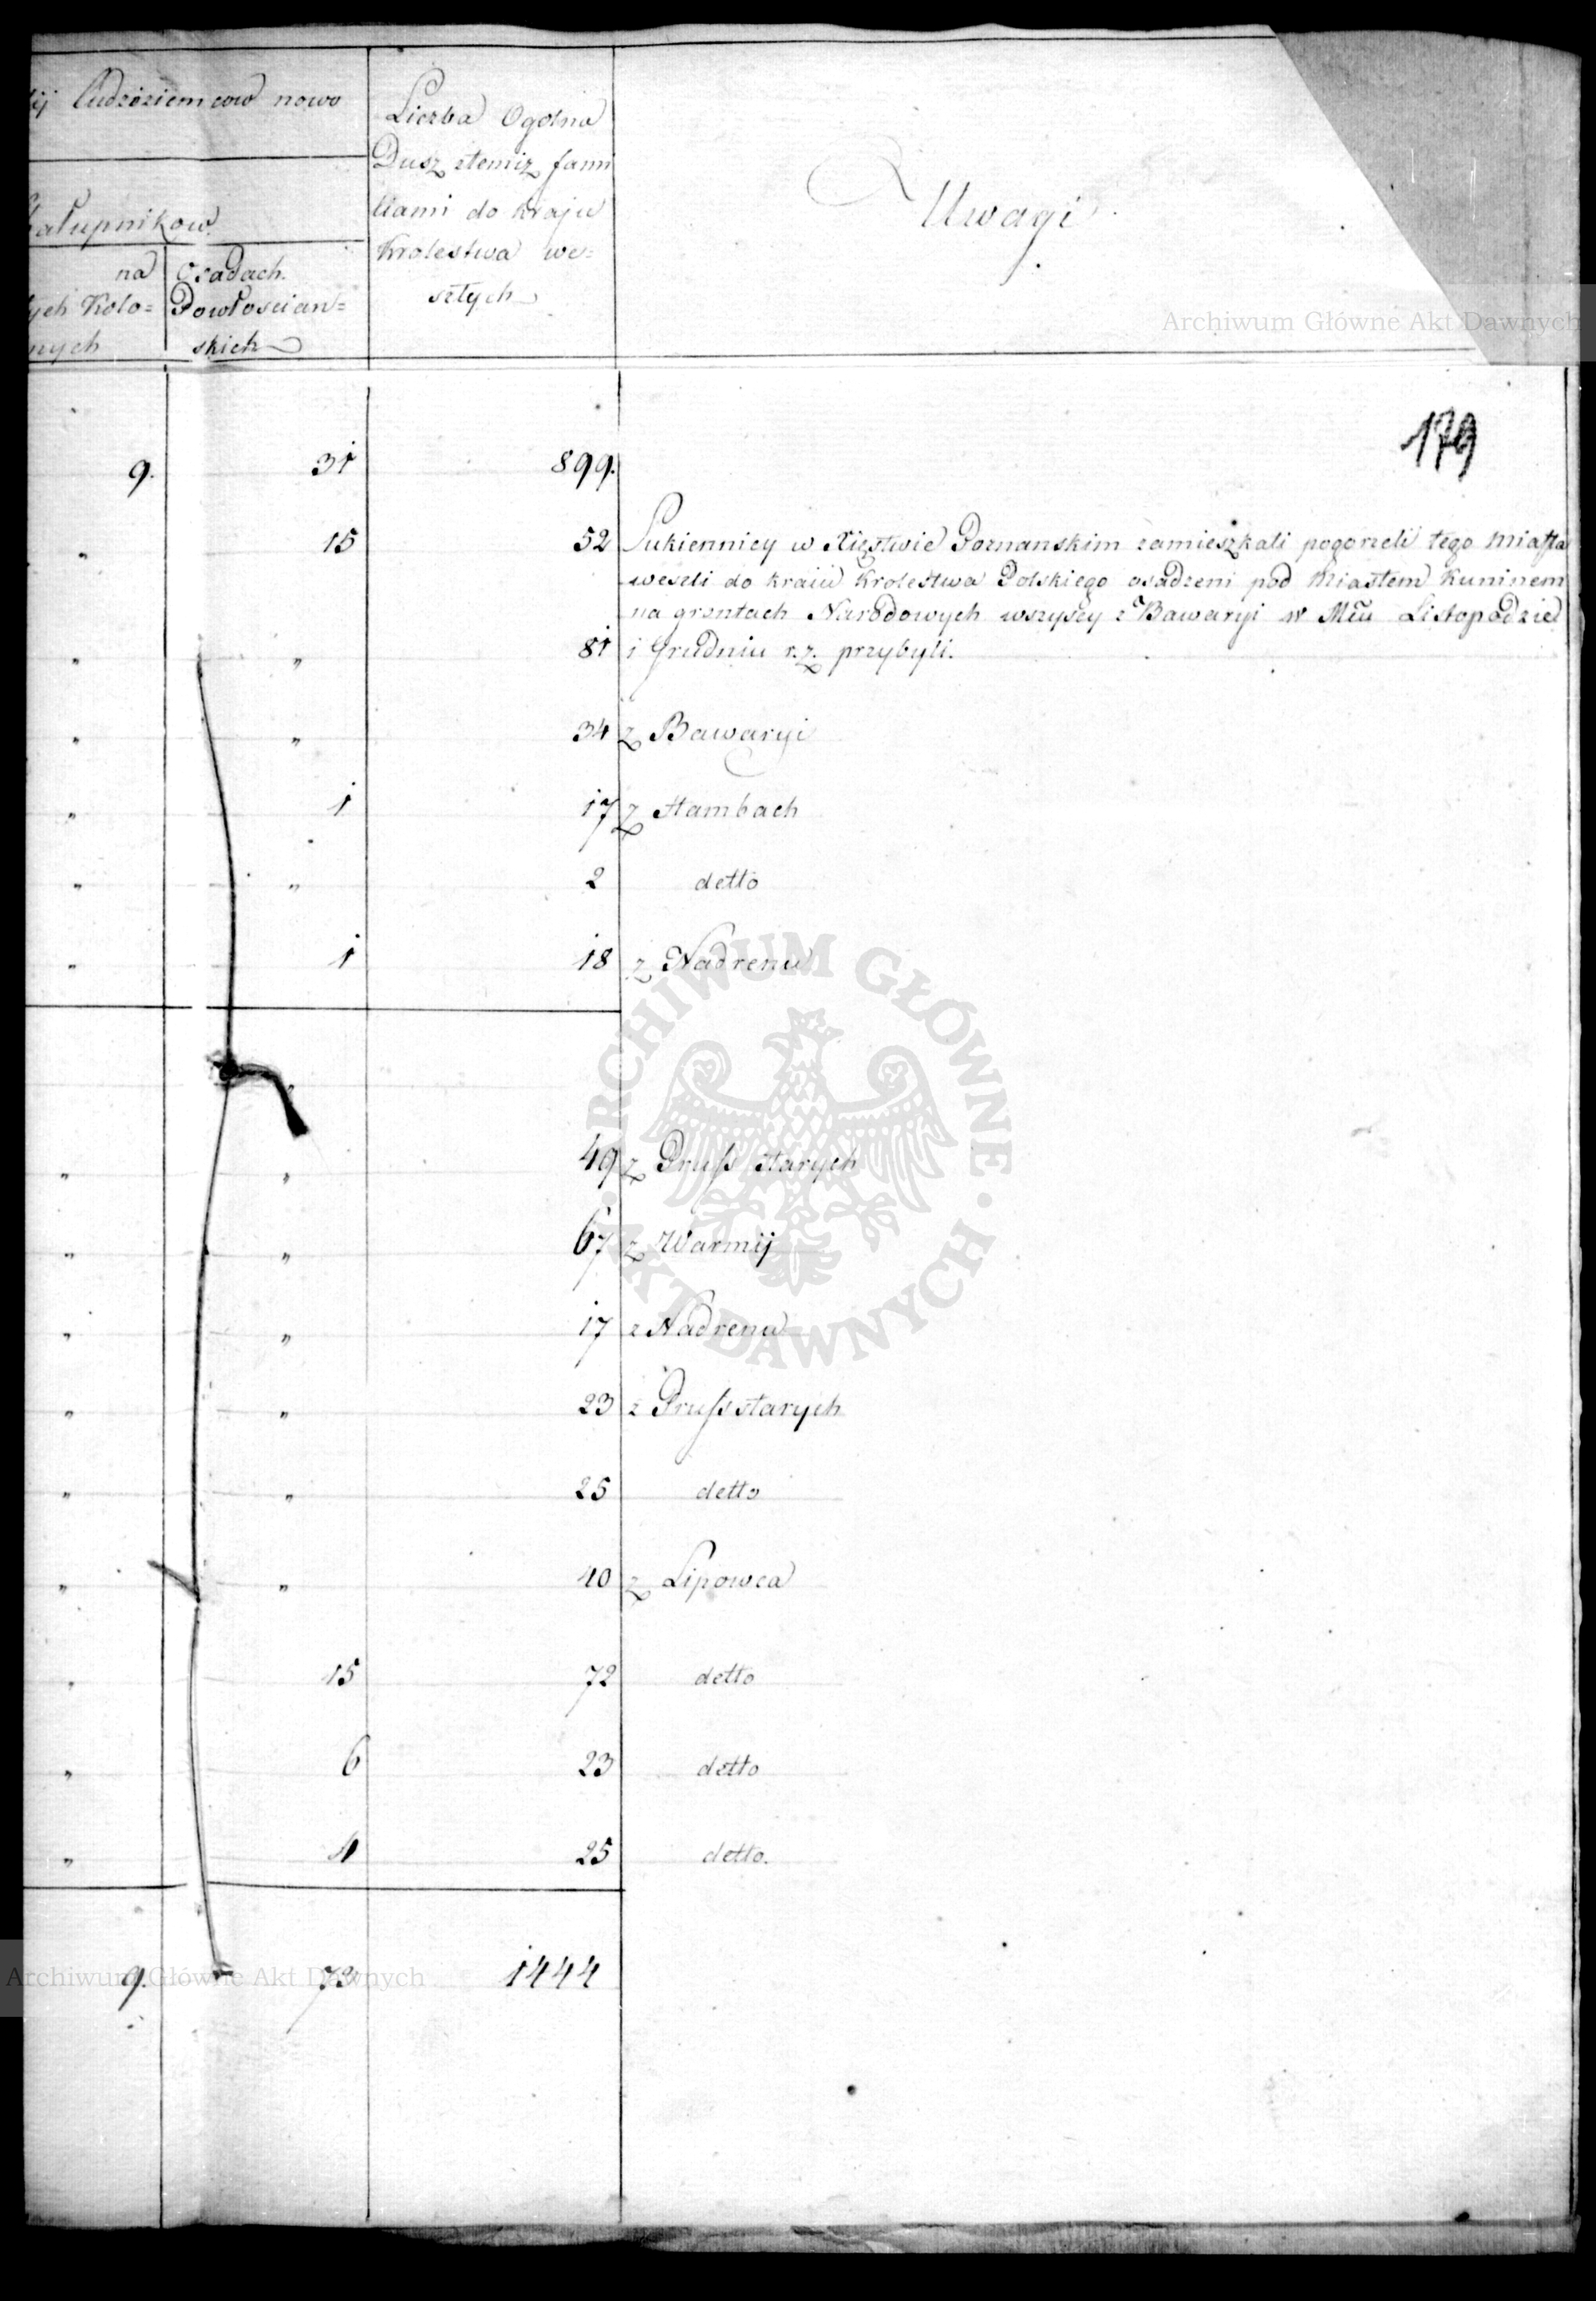 ij Cudzoziemcow nowo
Chałupnikow.
na
ych Kolo=
nych
Osadach
Powłoscian=
skich
Liczba Ogolna
Dusz ztemiz fami
liami do kraju
Krolestwa we=
szłych
Uwagi
Archiwum Główne Akt Dawnych
179
9. 31 899.
" 15 52 Sukiennicy w Xięstwie Poznanskim zamieszkali pogorzeli tego Miasta
weszli do kraiu Krolestwa Polskiego osadzeni pod Miastem Kuninem
na gruntach Narodowych wszyscy z Bawaryi w Mcu Listopadzie
" " 81 i Grudniu r.z. przybyli.
" " 34 z Bawaryi
" 1 17 z Hambach
" " 2 detto
" 1 18 z Nadrenu
ARCHIWUM GŁÓWNE AKT DAWNYCH
" " 49 z Pruss starych
" " 67 z Warmij
" " 17 z Nadrenu
" " 23 z Pruss starych
" " 25 detto
" " 40 z Lipowca
" 15 72 detto
" 6 23 detto
" 4 25 detto.
9. 73 1444
Archiwum Główne Akt Dawnych